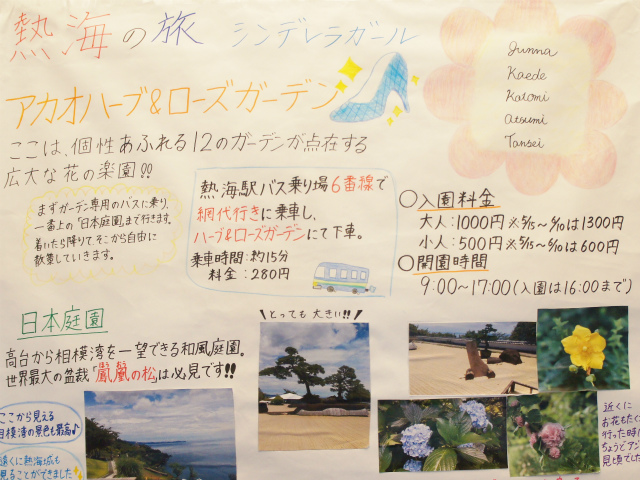 熱海の旅 シンデレラガール
アカオハーブ&ローズガーデン
Junna
Kaede
Katomi
Atsumi
Tansei
ここは、個性あふれる12のガーデンが点在する
広大な花の楽園!!
まずガーデン専用のバスに乗り、
一番上の「日本庭園」まで行きます。
着いたら降りて、そこから自由に
散策していきます。
熱海駅バス乗り場6番線で
網代行きに乗車し、
ハーブ&ローズガーデンにて下車。
乗車時間:約15分
料金:280円
○入園料金
大人:1000円 ※5/15~6/10は1300円
小人:500円 ※5/15~6/10は600円
○開園時間
9:00~17:00(入園は16:00まで)
日本庭園
高台から相模湾を一望できる和風庭園。
世界最大の盆栽「鳳凰の松」は必見です!!
\\とっても大きい!!//
ここから見える
相模湾の景色も最高♪
遠くに熱海城も
見ることができました
近くに
お花もたく
行った時
ちょうどアジ
見頃でした